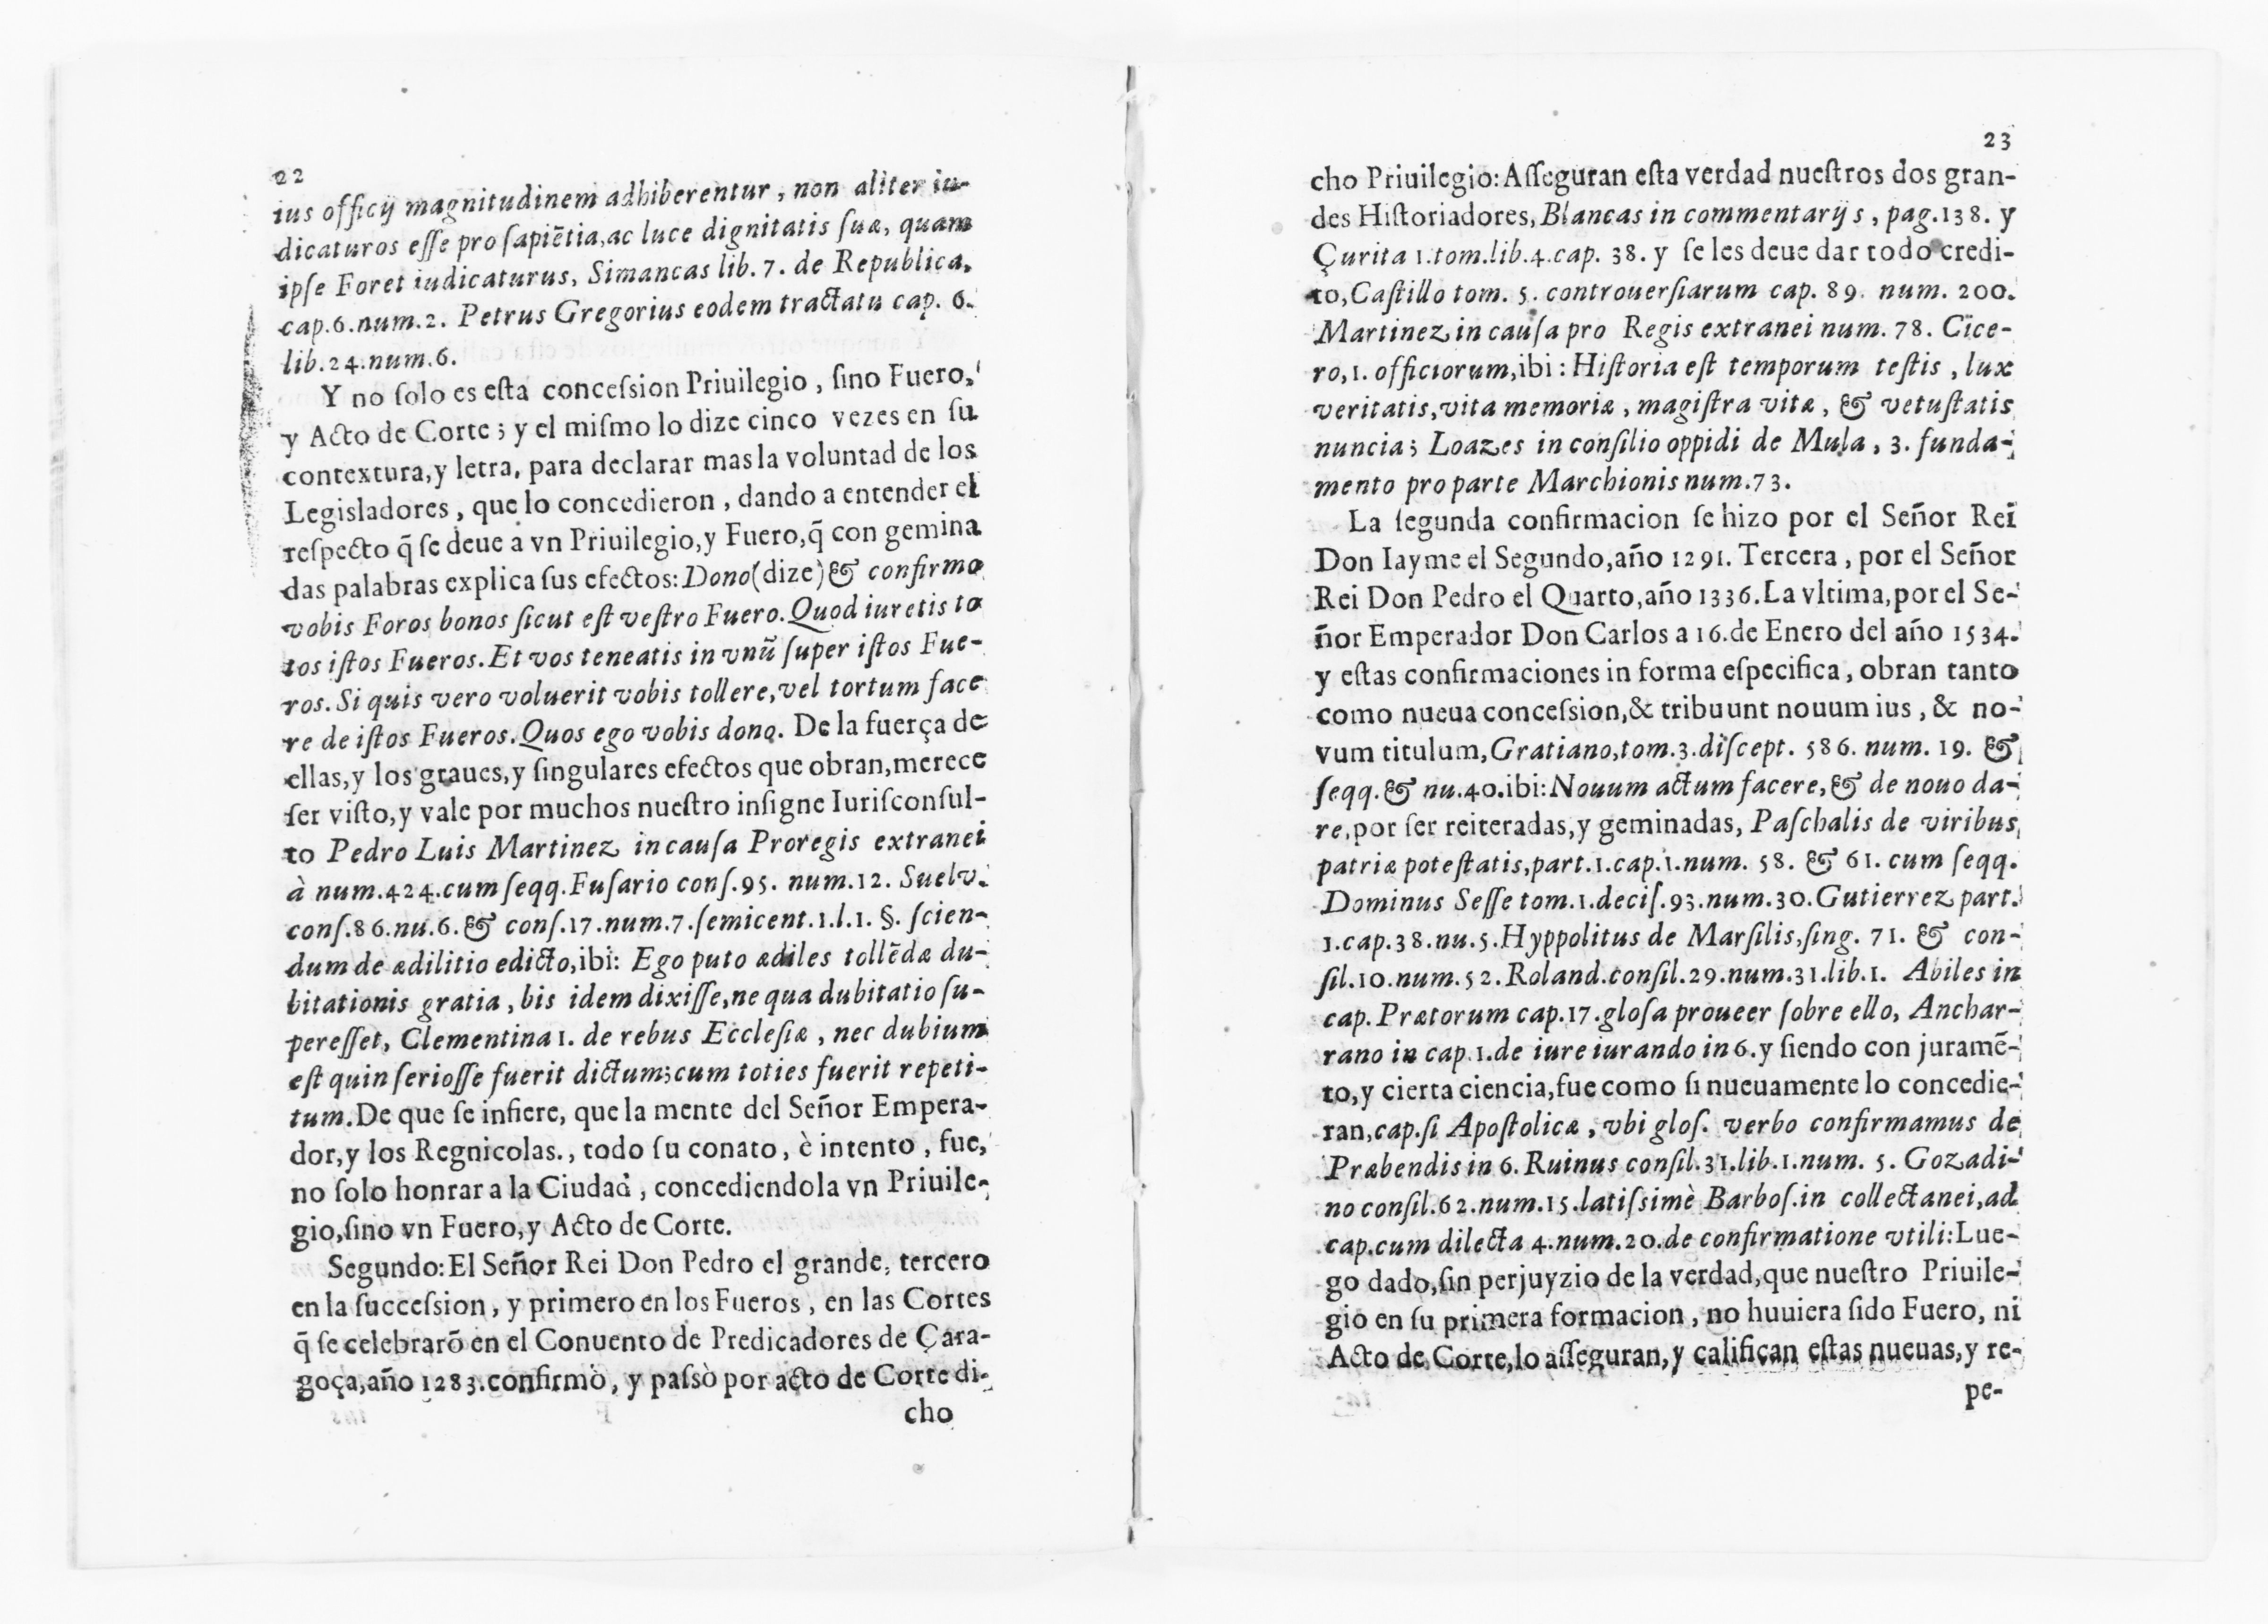 22
ius officij magnitudinem adhiberentur, non aliter iu-
dicaturos esse pro sapiẽtia, ac luce dignitatis suæ, quam
ipse Foret iudicaturus, Simancas lib. 7. de Republica,
cap.6.num.2. Petrus Gregorius eodem tractatu cap. 6.
lib.24.num.6.
Y no ſolo es eſta conceſsion Priuilegio, ſino Fuero,
y Acto de Corte; y el miſmo lo dize cinco vezes en ſu
contextura,y letra, para declarar mas la voluntad de los
Legisladores, que lo concedieron, dando a entender el
reſpecto q̃ ſe deue a vn Priuilegio,y Fuero,q̃ con gemina
das palabras explica ſus efectos: Dono(dize)& confirmo
vobis Foros bonos ſicut eſt veſtro Fuero. Quod iuretis to
tos iſtos Fueros. Et vos teneatis in vnũ ſuper iſtos Fue-
ros. Si quis vero voluerit vobis tollere,vel tortum face
re de iſtos Fueros. Quos ego vobis dono. De la fuerça de
ellas,y los graues,y ſingulares efectos que obran,merece
ſer viſto,y vale por muchos nueſtro inſigne Iuriſconſul-
to Pedro Luis Martinez in cauſa Proregis extranei
à num.424.cum ſeqq. Fuſario conſ.95. num.12. Suelv.
conſ.86.nu.6.& conſ.17.num.7.ſemicent.1.l.1. §. ſcien-
dum de ædilitio edicto,ibi: Ego puto ædiles tollẽdæ du-
bitationis gratia, bis idem dixiſſe,ne qua dubitatio ſu-
pereſſet, Clementina 1. de rebus Eccleſiæ, nec dubium
eſt quin ſerioſſe fuerit dictum;cum toties fuerit repeti-
tum. De que ſe infiere, que la mente del Señor Empera-
dor,y los Regnicolas., todo ſu conato, è intento, fue,
no ſolo honrar a la Ciudad, concediendola vn Priuile-
gio,ſino vn Fuero,y Acto de Corte.
Segundo: El Señor Rei Don Pedro el grande, tercero
en la ſucceſsion, y primero en los Fueros, en las Cortes
q̃ ſe celebrarõ en el Conuento de Predicadores de Çara-
goça,año 1283.confirmò, y paſsò por acto de Corte di-
cho
23
cho Priuilegio: Aſſeguran eſta verdad nueſtros dos gran-
des Hiſtoriadores, Blancas in commentarijs, pag.138. y
Çurita 1.tom.lib.4.cap. 38. y ſe les deue dar todo credi-
to, Caſtillo tom. 5. controuerſiarum cap. 89. num. 200.
Martinez in cauſa pro Regis extranei num. 78. Cice-
ro,1. officiorum,ibi: Hiſtoria eſt temporum teſtis, lux
veritatis,vita memoriæ, magiſtra vitæ, & vetuſtatis
nuncia; Loazes in conſilio oppidi de Mula, 3. funda-
mento pro parte Marchionis num.73.
La ſegunda confirmacion ſe hizo por el Señor Rei
Don Iayme el Segundo,año 1291. Tercera, por el Señor
Rei Don Pedro el Quarto,año 1336. La vltima,por el Se-
ñor Emperador Don Carlos a 16.de Enero del año 1534.
y eſtas confirmaciones in forma eſpecifica, obran tanto
como nueua conceſsion,& tribuunt nouum ius, & no-
vum titulum, Gratiano,tom.3.diſcept. 586. num. 19. &
ſeqq.& nu.40.ibi: Nouum actum facere,& de nouo da-
re,por ſer reiteradas,y geminadas, Paſchalis de viribus
patriæ poteſtatis,part.1.cap.1.num. 58. & 61. cum ſeqq.
Dominus Seſſe tom.1.deciſ.93.num.30. Gutierrez part.
1.cap.38.nu.5. Hyppolitus de Marſilis,ſing. 71. & con-
ſil.10.num.52. Roland.conſil.29.num.31.lib.1. Abiles in
cap. Prætorum cap.17.gloſa proueer ſobre ello, Anchar-
rano in cap.1.de iure iurando in 6.y ſiendo con juramẽ-
to,y cierta ciencia,fue como ſi nueuamente lo concedie-
ran,cap.ſi Apoſtolicæ, vbi gloſ. verbo confirmamus de
Præbendis in 6. Ruinus conſil.31.lib.1.num. 5. Gozadi-
no conſil.62.num.15.latiſsimè Barboſ.in collectanei,ad
cap.cum dilecta 4.num.20.de confirmatione vtili: Lue-
go dado,ſin perjuyzio de la verdad,que nueſtro Priuile-
gio en ſu primera formacion, no huuiera ſido Fuero, ni
Acto de Corte,lo aſſeguran,y califican eſtas nueuas,y re-
pe-